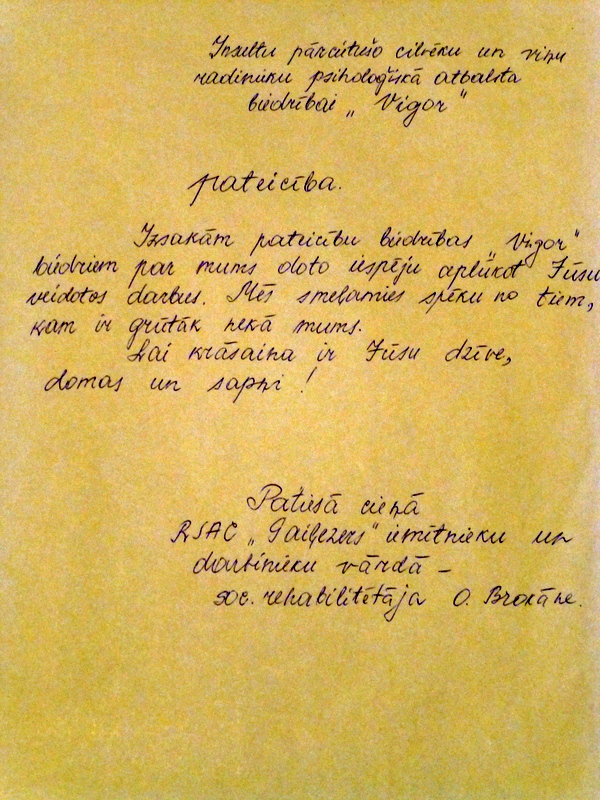 Insultu pārcietušo cilvēku un viņu
radinieku psiholoģiskā atbalsta
biedrībai „Vigor"
pateicība.
Izsakām pateicību biedrības „Vigor"
biedriem par mums doto iespēju aplūkot Jūsu
veidotos darbus. Mēs smeļamies spēku no tiem,
kam ir grūtāk nekā mums.
Lai krāsaina ir Jūsu dzīve,
domas un sapņi!
Patiesā cieņā
RSAC „Gaiļezers" iemītnieku un
darbinieku vārdā –
soc. rehabilitētāja O. Brokāne.